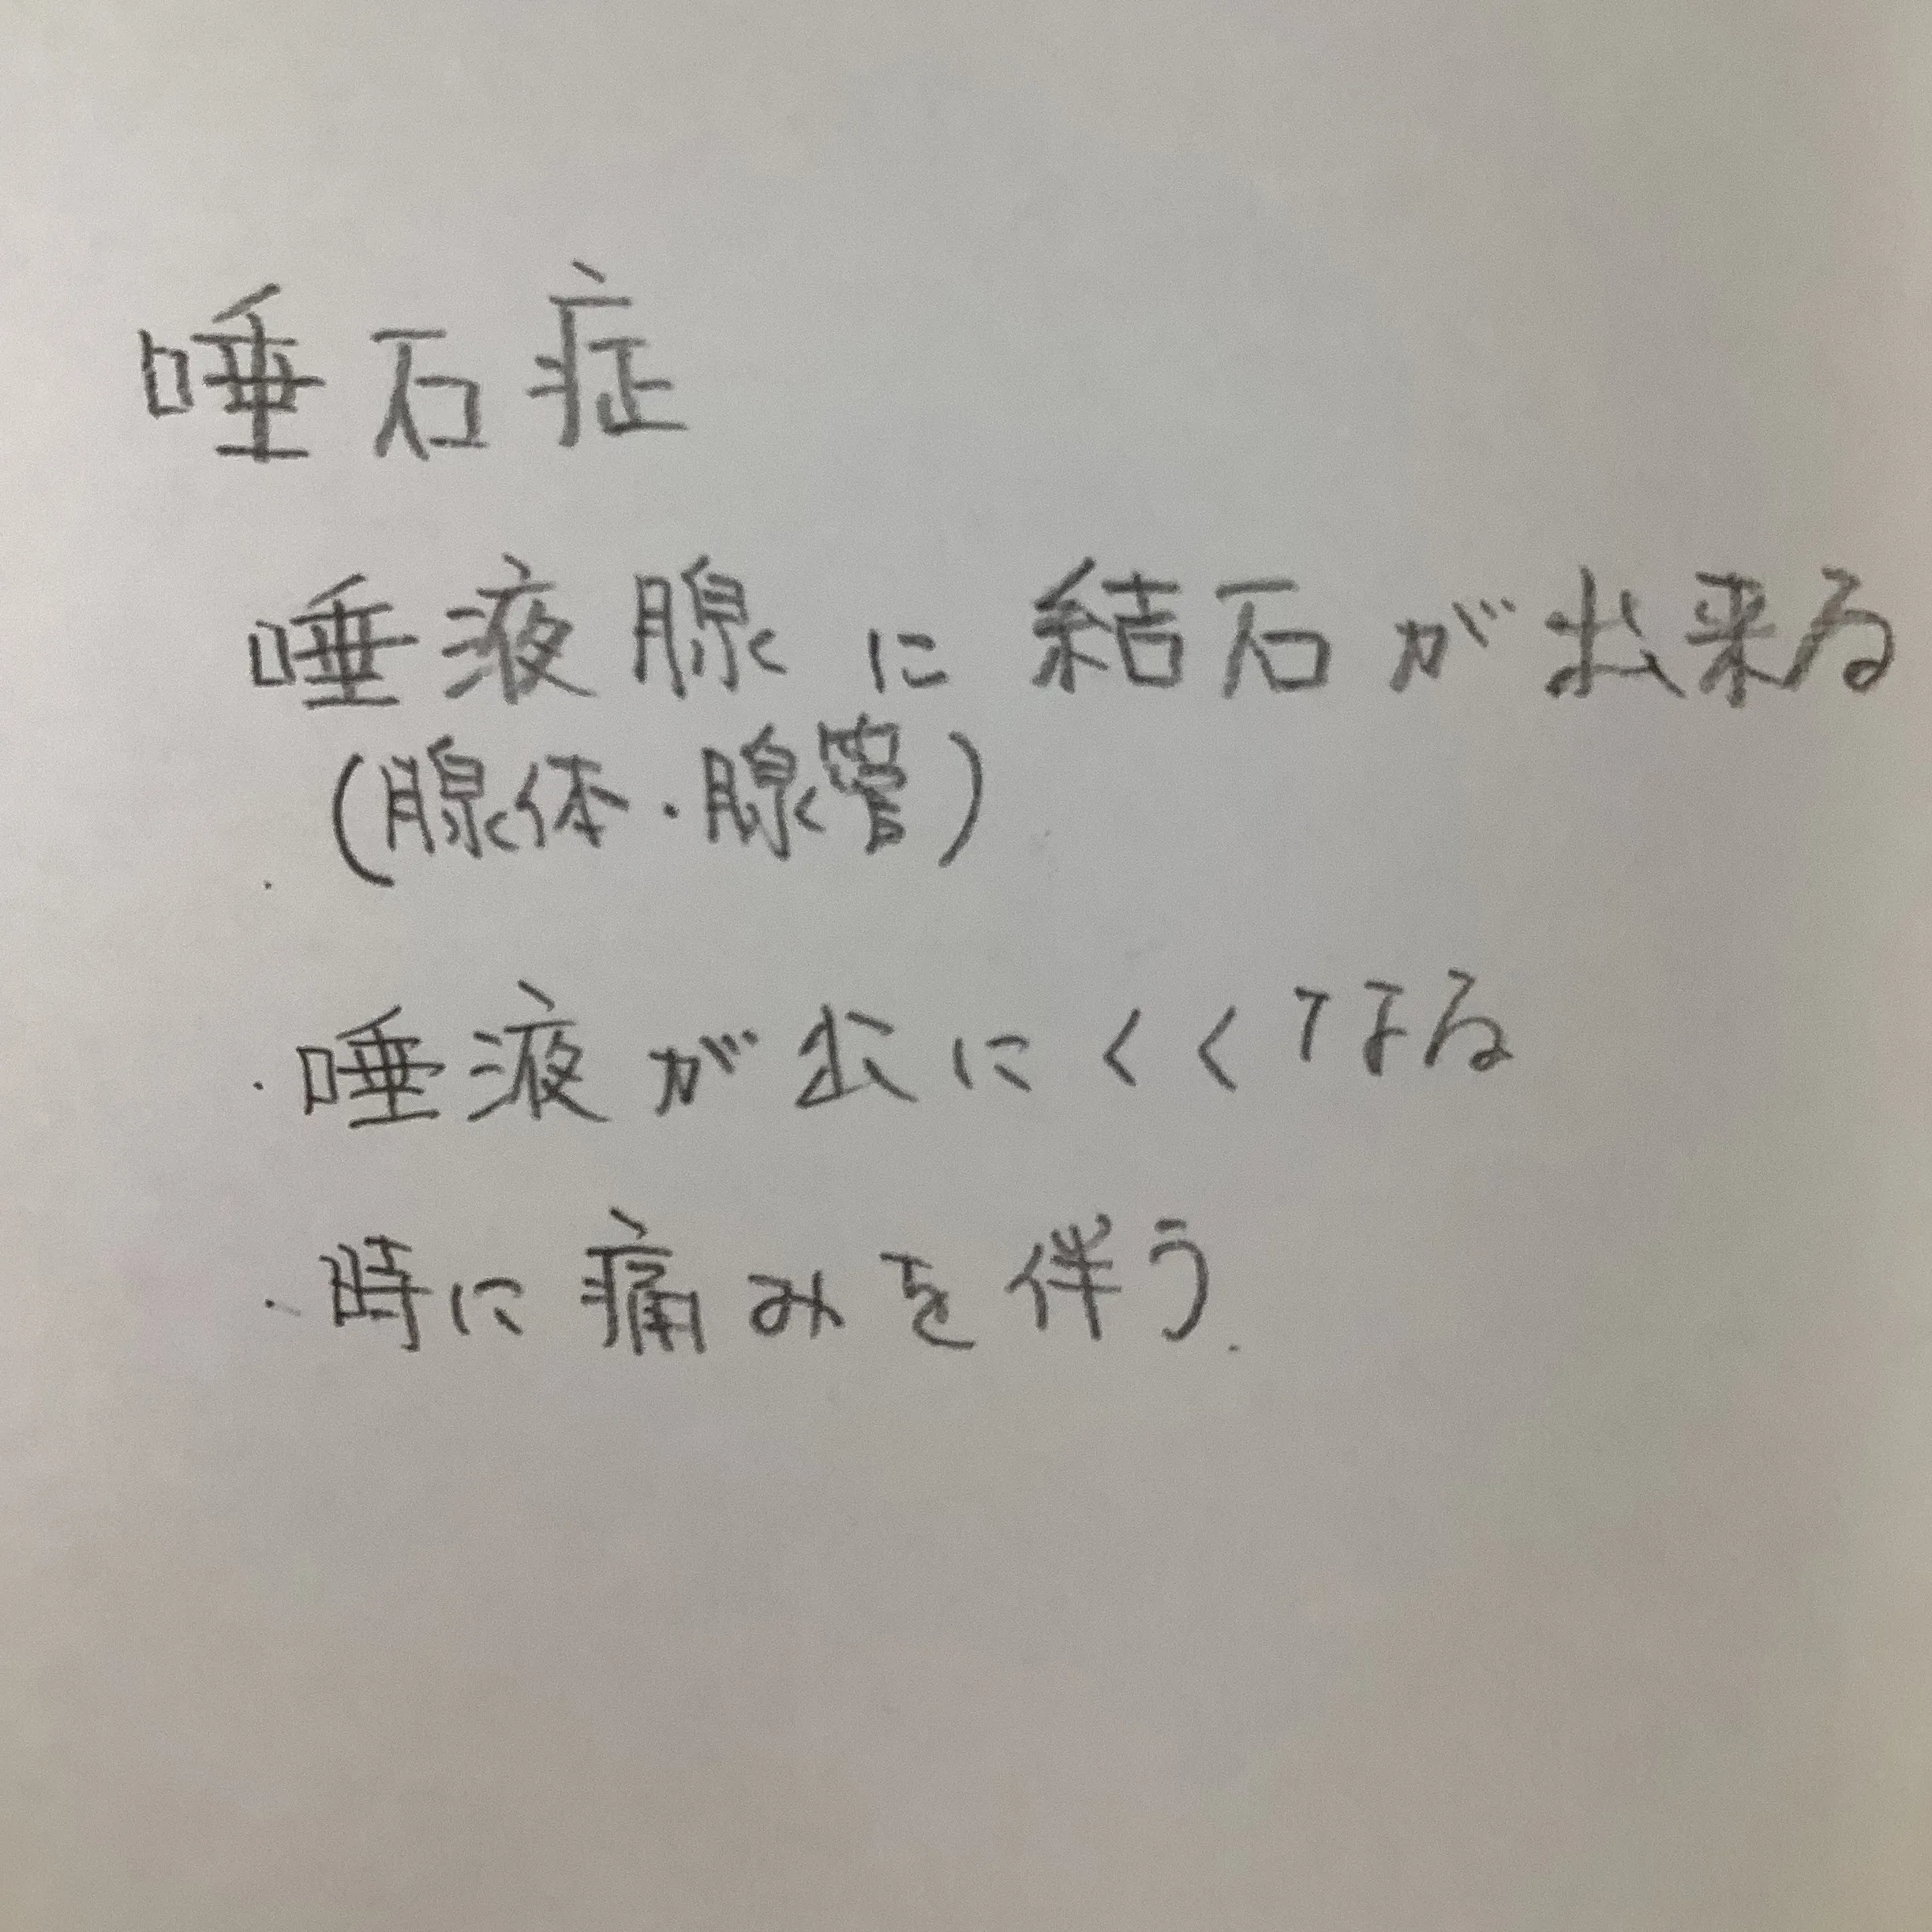 唾石症
唾液腺に結石が出来る
(腺体・腺管)
・唾液が出にくくなる
・時に痛みを伴う.